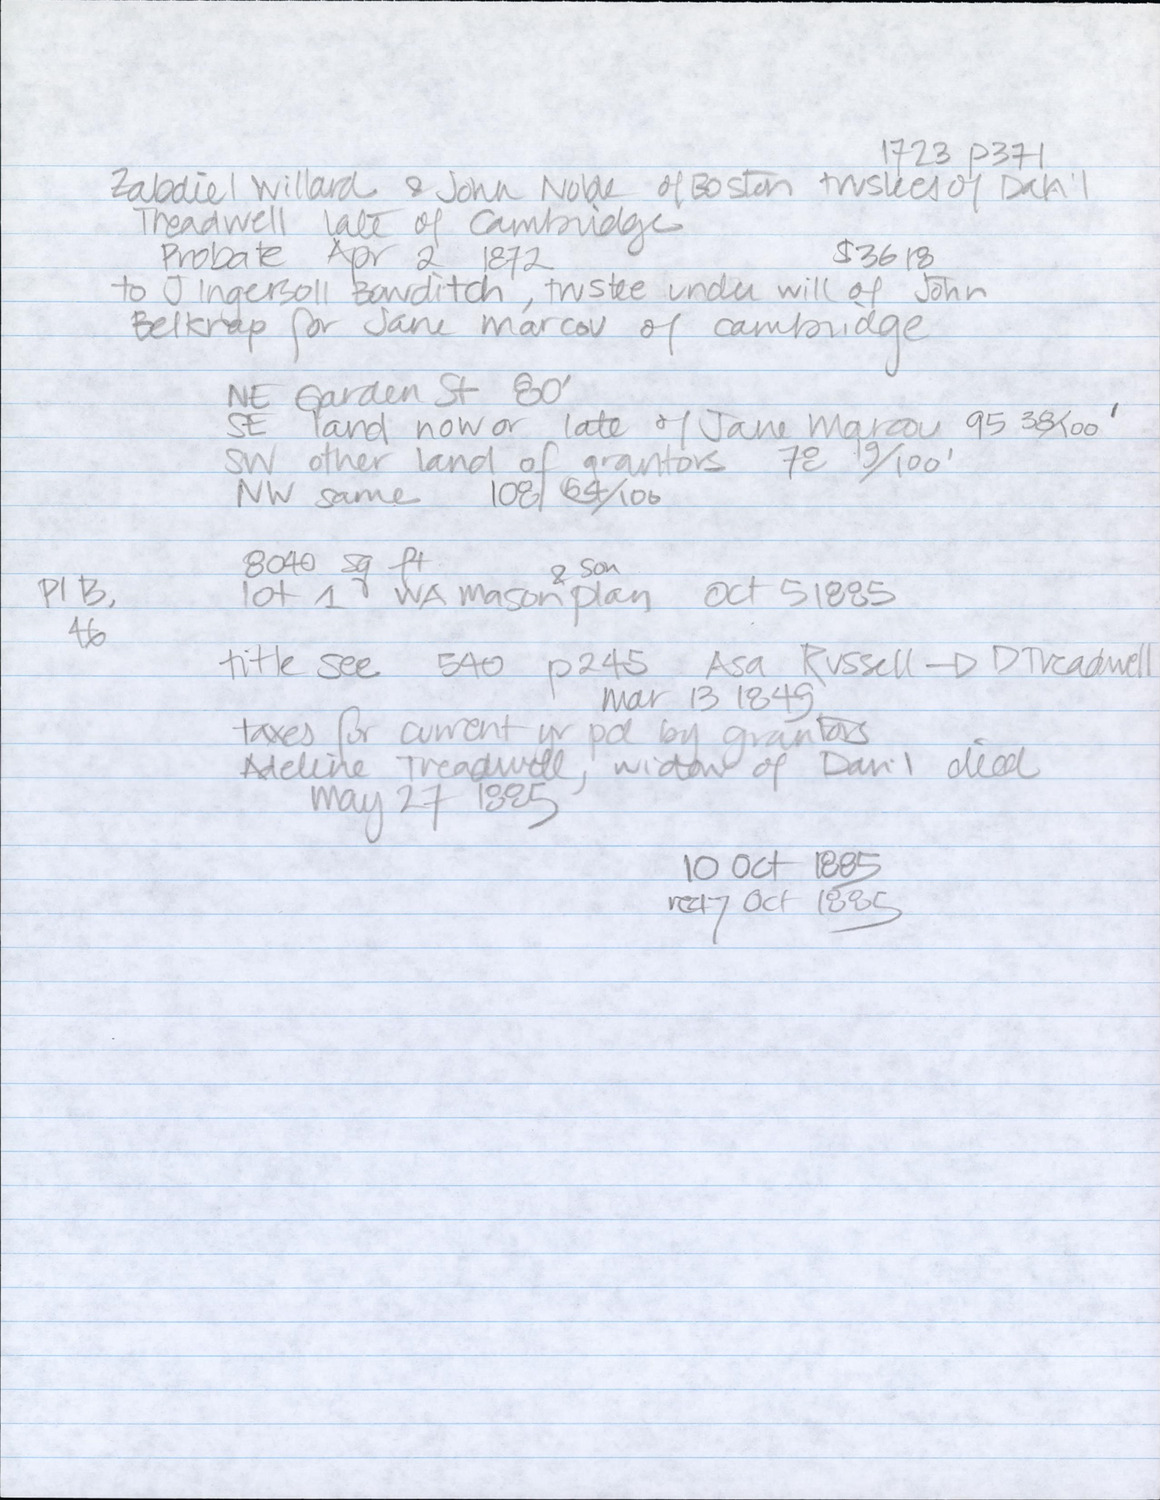 1723 p371
Zabdiel Willard & John Noble of Boston trustees of Dan'l
Treadwell late of Cambridge
Probate Apr 2 1872 $3618
to J Ingersoll Bowditch, trustee under will of John
Belknap for Jane Marcou of Cambridge
NE Garden St 80'
SE land now or late of Jane Marcou 95 38/100'
SW other land of grantors 78 19/100'
NW same 108 64/100
8040 sq ft
& son
Pl B, lot 1 WA Mason plan Oct 5 1885
46
title see 540 p245 Asa Russell → D Treadwell
Mar 13 1849
taxes for current yr pd by grantors
Adeline Treadwell, widow of Dan'l died
May 27 1885
10 Oct 1885
rec 17 Oct 1885